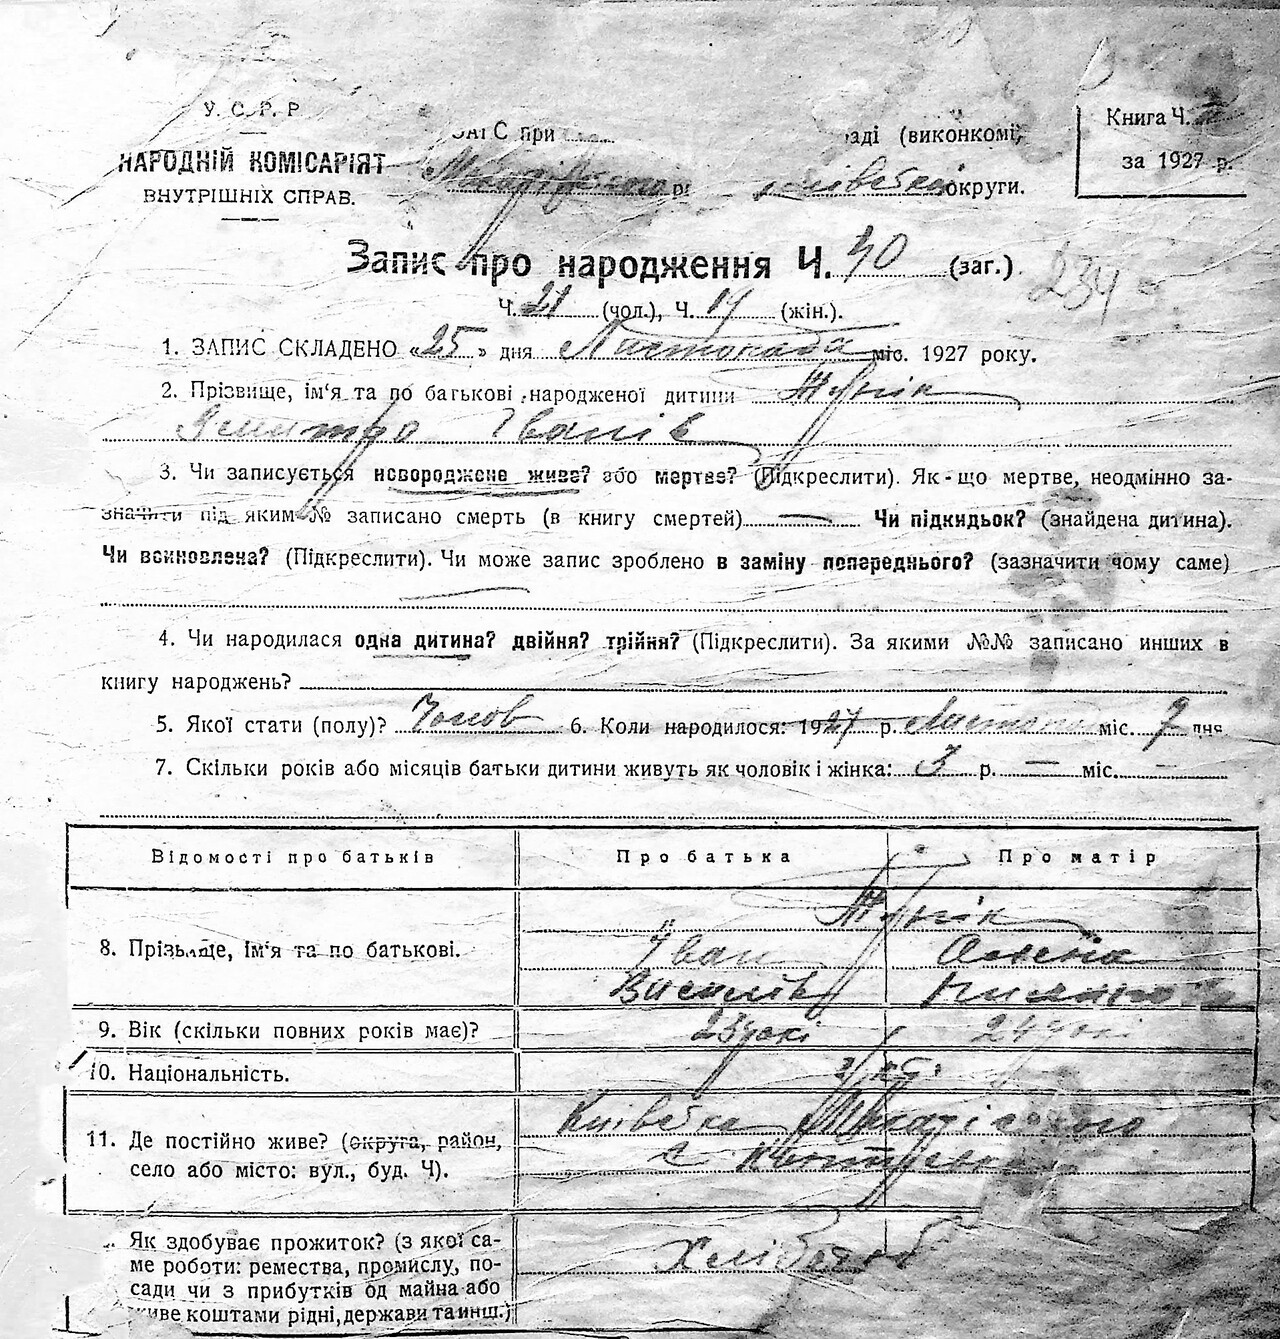 У. С. Р. Р
НАРОДНІЙ КОМІСАРІЯТ
ВНУТРІШНІХ СПРАВ.
ЗАГС при раді (виконкомі)
округи.
Книга Ч.
за 1927 р.
Запис про народження Ч. 40 (заг.)
234
Ч. 21 (чол.), Ч. 19 (жін.).
1. ЗАПИС СКЛАДЕНО «25» дня Листопада міс. 1927 року.
2. Прізвище, ім'я та по батькові народженої дитини
Іванів
3. Чи записується новороджене живе? або мертве? (Підкреслити). Як-що мертве, неодмінно за-
значити під яким № записано смерть (в книгу смертей) — Чи підкидьок? (знайдена дитина).
Чи всиновлена? (Підкреслити). Чи може запис зроблено в заміну попереднього? (зазначити чому саме)
4. Чи народилася одна дитина? двійня? трійня? (Підкреслити). За якими №№ записано инших в
книгу народжень?
5. Якої стати (полу)? Чолов 6. Коли народилося: 1927 р. Листопа міс. 7 дня
7. Скільки років або місяців батьки дитини живуть як чоловік і жінка: 3 р. — міс. —
Відомості про батьків Про батька Про матір
8. Прізвище, Ім'я та по батькові.
Іван Олена
Василів
9. Вік (скільки повних років має)? 23 24
10. Національність. Укр.
11. Де постійно живе? (округа, район,
село або місто: вул., буд. Ч).
Київська
с.
Як здобуває прожиток? (з якої са-
ме роботи: ремества, промислу, по-
сади чи з прибутків од майна або
живе коштами рідні, держави та инш.)
Хлібороб